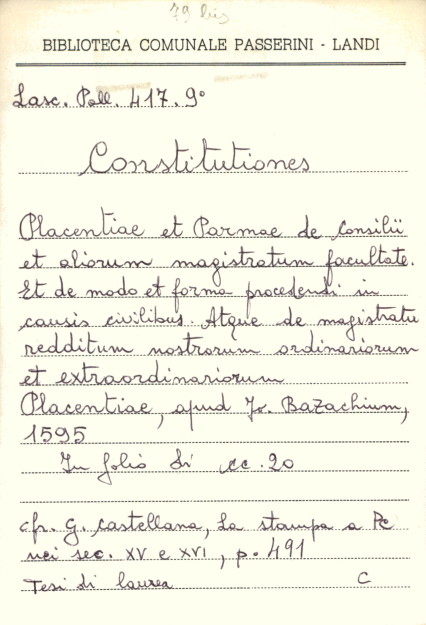 79 bis
BIBLIOTECA COMUNALE PASSERINI - LANDI
Lasc. Pall. 417. 9°
Constitutiones
Placentiae et Parmae de consilii
et aliorum magistratum facultate.
Et de modo et forma procedendi in
causis civilibus. Atque de magistratu
redditum nostrorum ordinariorum
et extraordinariorum
Placentiae, apud Jo. Bazachium,
1595
In folio di cc. 20
cfr. G. Castellana, La stampa a Pc
nei sec. XV e XVI, p. 491
Tesi di laurea C